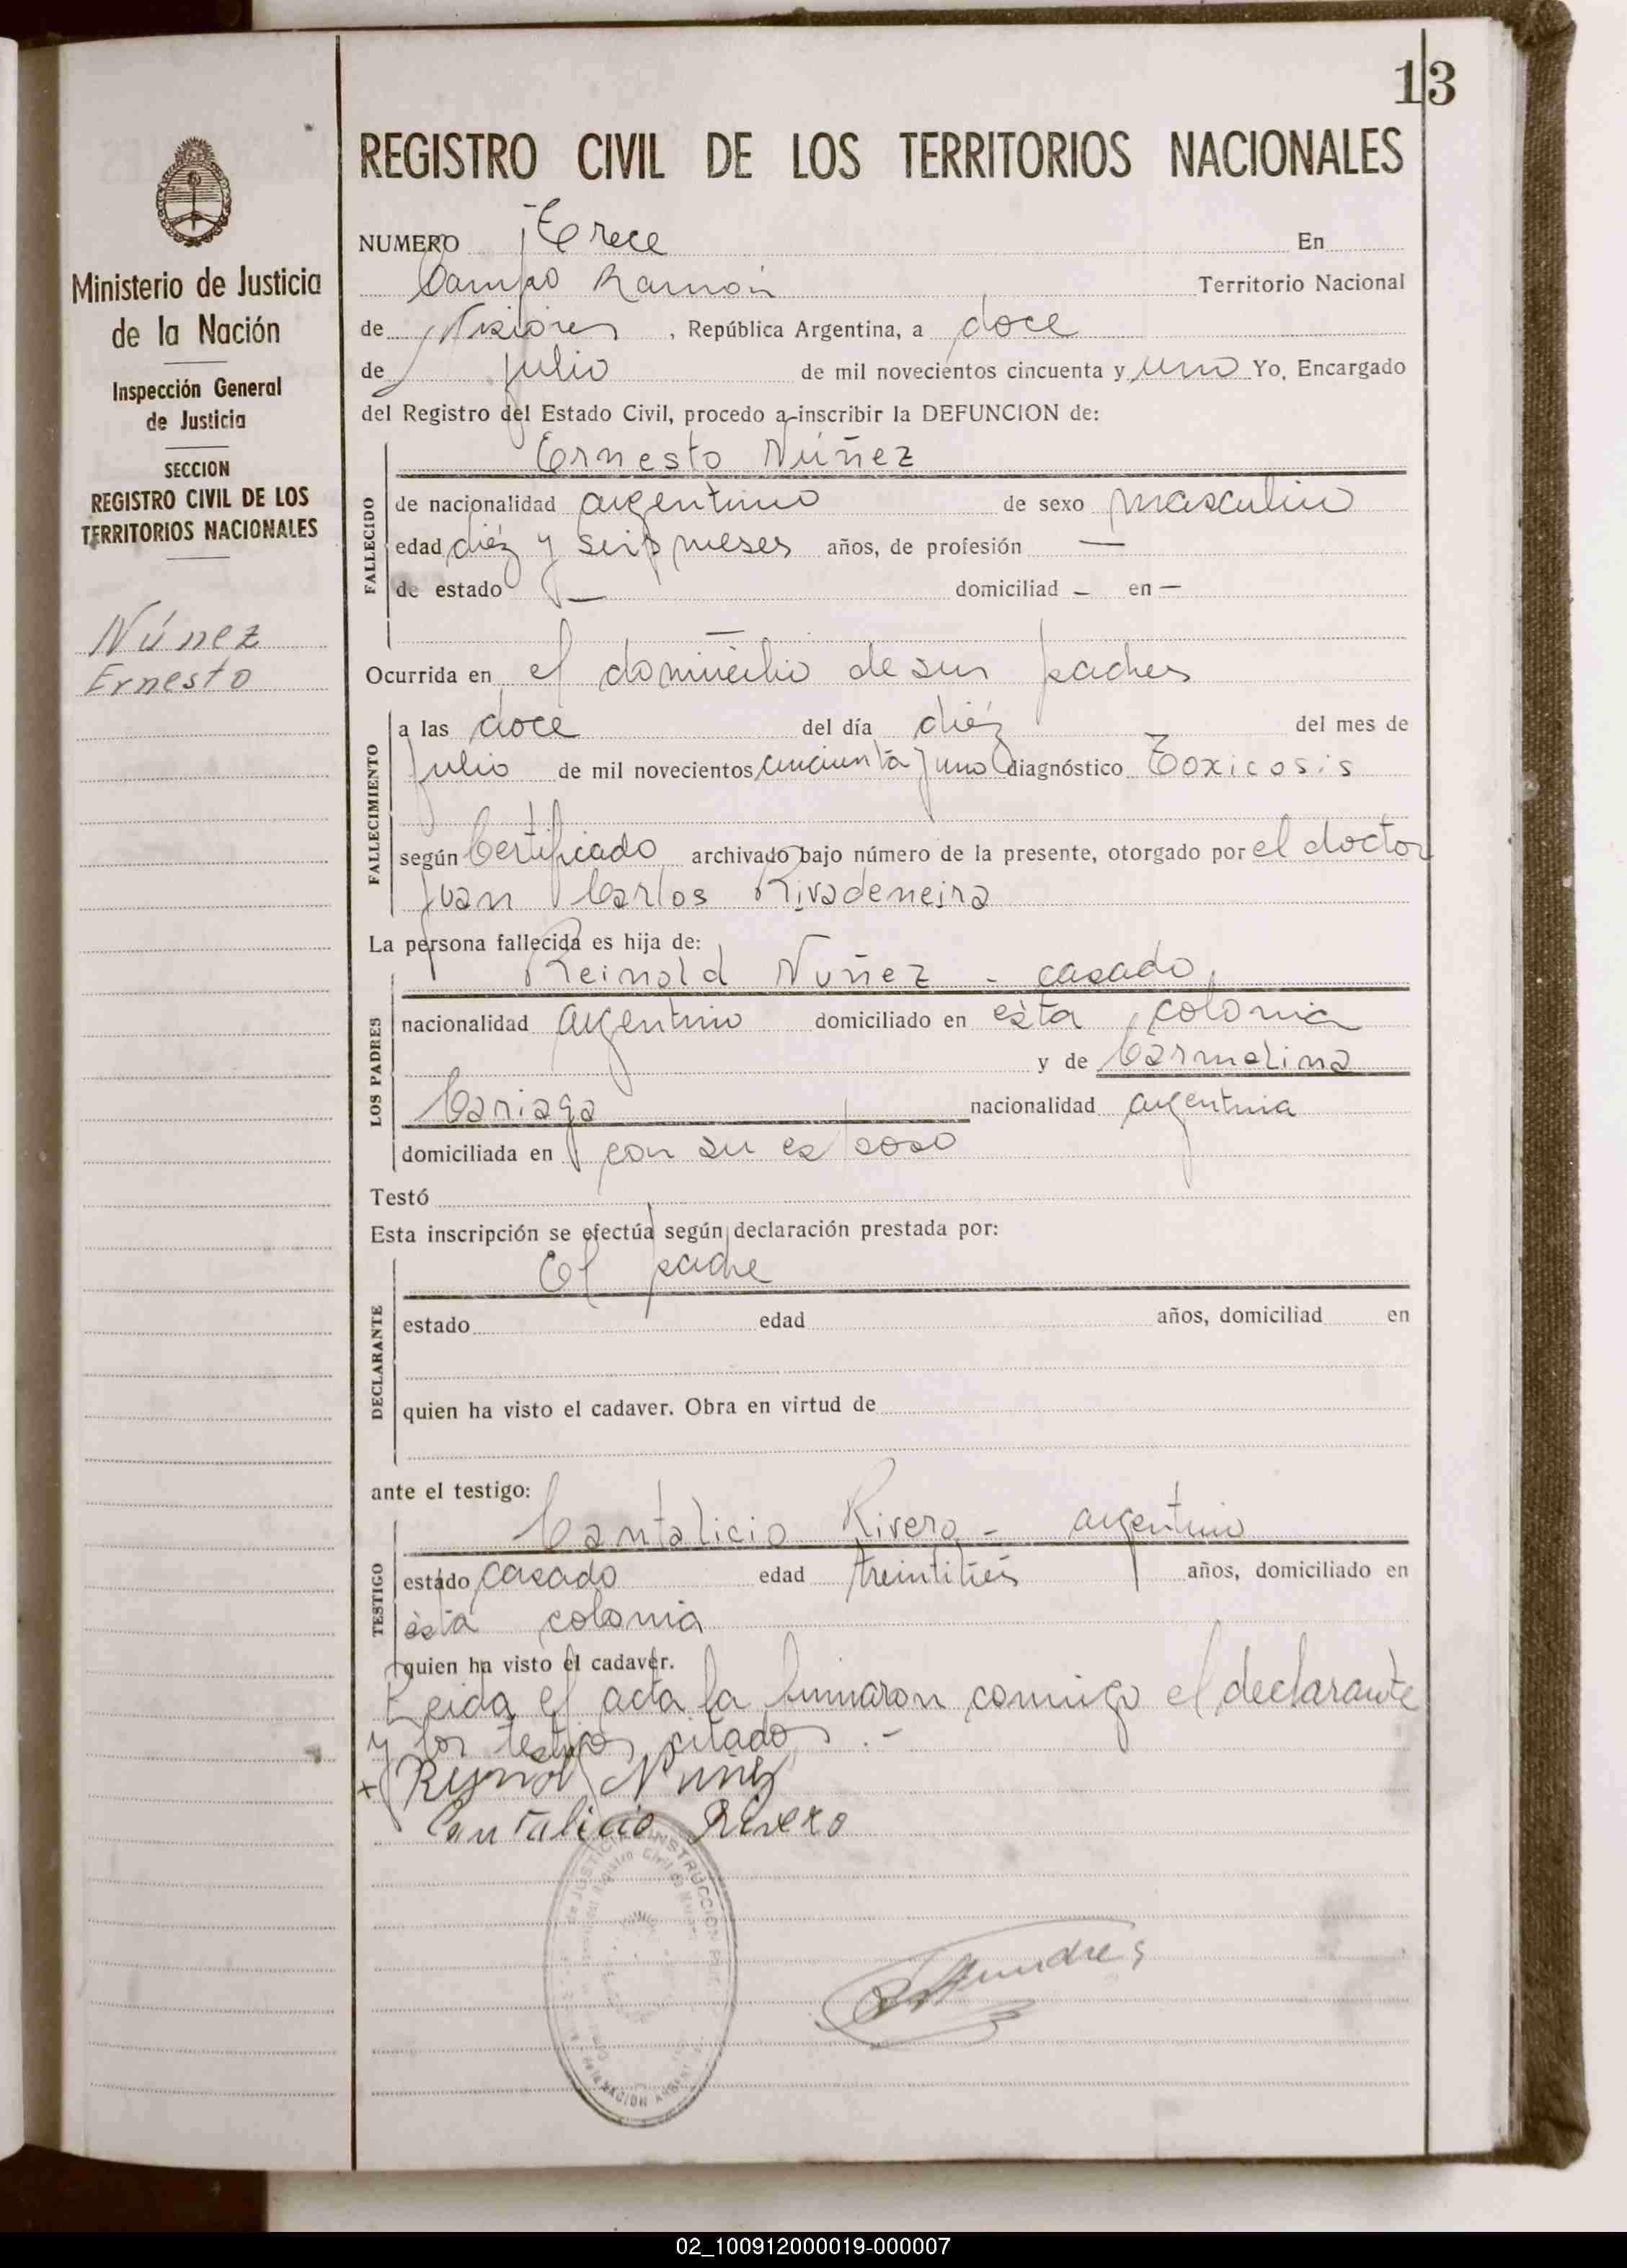 13
REGISTRO CIVIL DE LOS TERRITORIOS NACIONALES
Ministerio de Justicia
de la Nación
Inspección General
de Justicia
SECCION
REGISTRO CIVIL DE LOS
TERRITORIOS NACIONALES
Núnez
Ernesto
NUMERO Trece En
Campo Ramón Territorio Nacional
de Misiones, República Argentina, a doce
de julio de mil novecientos cincuenta y uno Yo, Encargado
del Registro del Estado Civil, procedo a inscribir la DEFUNCION de:
Ernesto Núñez
FALLECIDO
de nacionalidad argentino de sexo masculino
edad diéz y seis meses años, de profesión —
de estado — domiciliad — en —
—
Ocurrida en el domicilio de sus padres
FALLECIMIENTO
a las doce del día diéz del mes de
julio de mil novecientos cincuenta y uno diagnóstico Toxicosis
según Certificado archivado bajo número de la presente, otorgado por el doctor
Juan Carlos Rivadeneira
La persona fallecida es hija de:
LOS PADRES
Reinold Nuñez - casado,
nacionalidad argentino domiciliado en ésta colonia
y de Carmelina
Cariaga nacionalidad argentina
domiciliada en con su esposo
Testó
Esta inscripción se efectúa según declaración prestada por:
DECLARANTE
El padre
estado edad años, domiciliad en
quien ha visto el cadaver. Obra en virtud de
ante el testigo:
TESTIGO
Cantalicio Rivero - argentino
estado casado edad treintitrés años, domiciliado en
ésta colonia
quien ha visto el cadaver.
Leida el acta la firmaron conmigo el declarante
y los testigos citados.-
x Reynold Nuñez
Cantalicio Rivero
JUSTICIA INSTRUCCION
Registro Civil de
NACION
02_100912000019-000007